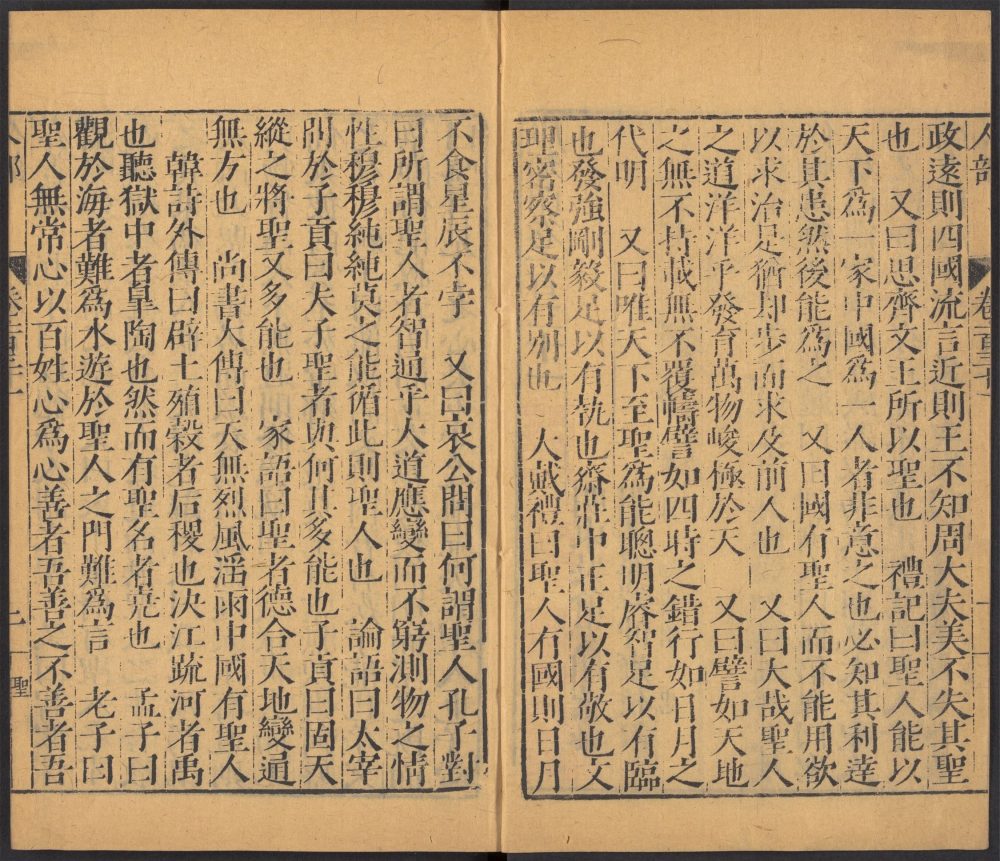 政遠則四國流言近則王不知周大夫美不失其聖
也 又曰思齊文王所以聖也 禮記曰聖人能以
天下爲一家中國爲一人者非意之也必知其利達
於其患然後能爲之 又曰國有聖人而不能用欲
以求治是猶却步而求及前人也 又曰大哉聖人
之道洋洋乎發育萬物峻極於天 又曰譬如天地
之無不持載無不覆幬譬如四時之錯行如日月之
代明 又曰唯天下至聖爲能聰明睿智足以有臨
也發強剛毅足以有執也齋莊中正足以有敬也文
理密察足以有別也 大戴禮曰聖人有國則日月
不食星辰不孛 又曰哀公問曰何謂聖人孔子對
曰所謂聖人者智通乎大道應變而不窮測物之情
性穆穆純純莫之能循此則聖人也 論語曰太宰
問於子貢曰夫子聖者與何其多能也子貢曰固天
縱之將聖又多能也 家語曰聖者德合天地變通
無方也 尚書大傳曰天無烈風淫雨中國有聖人
韓詩外傳曰辟土殖穀者后稷也決江疏河者禹
也聽獄中者臯陶也然而有聖名者堯也 孟子曰
觀於海者難爲水遊於聖人之門難爲言 老子曰
聖人無常心以百姓心爲心善者吾善之不善者吾
人部
聖